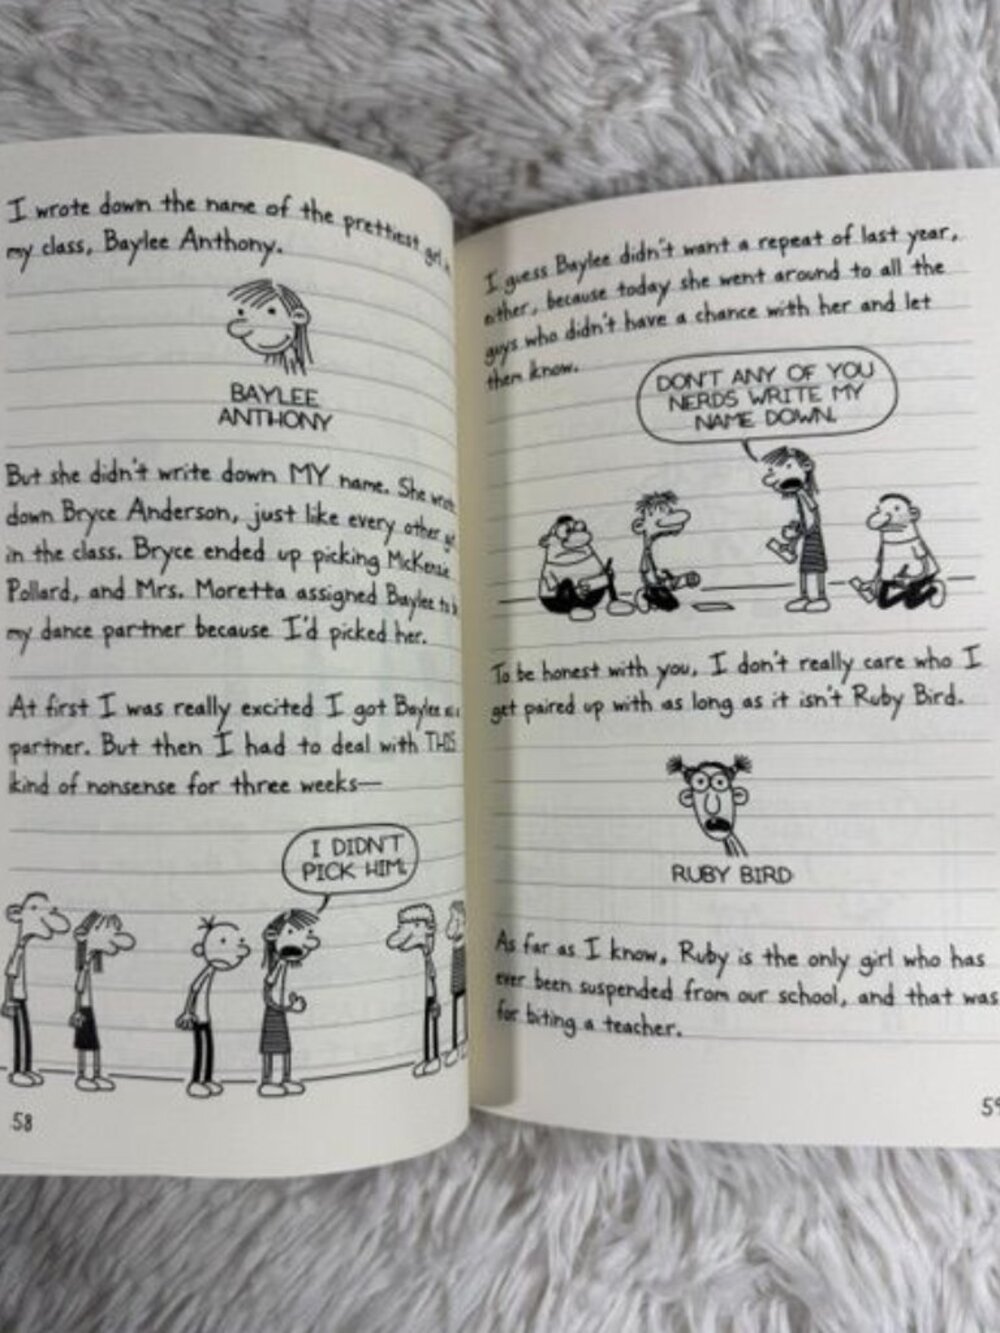 I wrote down the name of the prettiest girl
my class, Baylee Anthony.
BAYLEE
ANTHONY
But she didn't write down MY name. She wrote
down Bryce Anderson, just like every other
in the class. Bryce ended up picking McKenzie
Pollard, and Mrs. Moretta assigned Baylee to
my dance partner because I'd picked her.
At first I was really excited I got Baylee
partner. But then I had to deal with THIS
kind of nonsense for three weeks—
I DIDN'T
PICK HIM.
58
I guess Baylee didn't want a repeat of last year,
either, because today she went around to all the
guys who didn't have a chance with her and let
them know.
DON'T ANY OF YOU
NERDS WRITE MY
NAME DOWN.
To be honest with you, I don't really care who I
get paired up with as long as it isn't Ruby Bird.
RUBY BIRD
As far as I know, Ruby is the only girl who has
ever been suspended from our school, and that was
for biting a teacher.
59